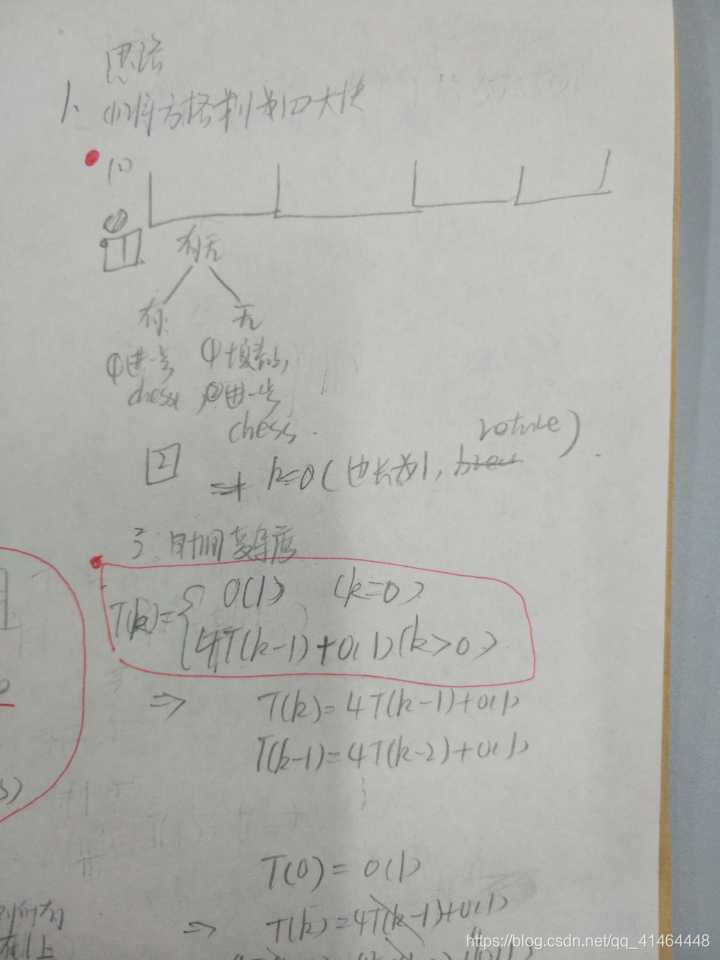 思路
1、将方格划为四大块
10
1
有无
有 无
①进一步 ①填截的,
chess ②进一步
chess.
2 => k=0(边长为1, return).
3. 时间复杂度
T(k)={ O(1) (k=0)
4T(k-1)+O(1)(k>0)
=> T(k)=4T(k-1)+O(1)
T(k-1)=4T(k-2)+O(1)
T(0)=O(1)
=> T(k)=4T(k-1)+O(1)
在1上
https://blog.csdn.net/qq_41464448